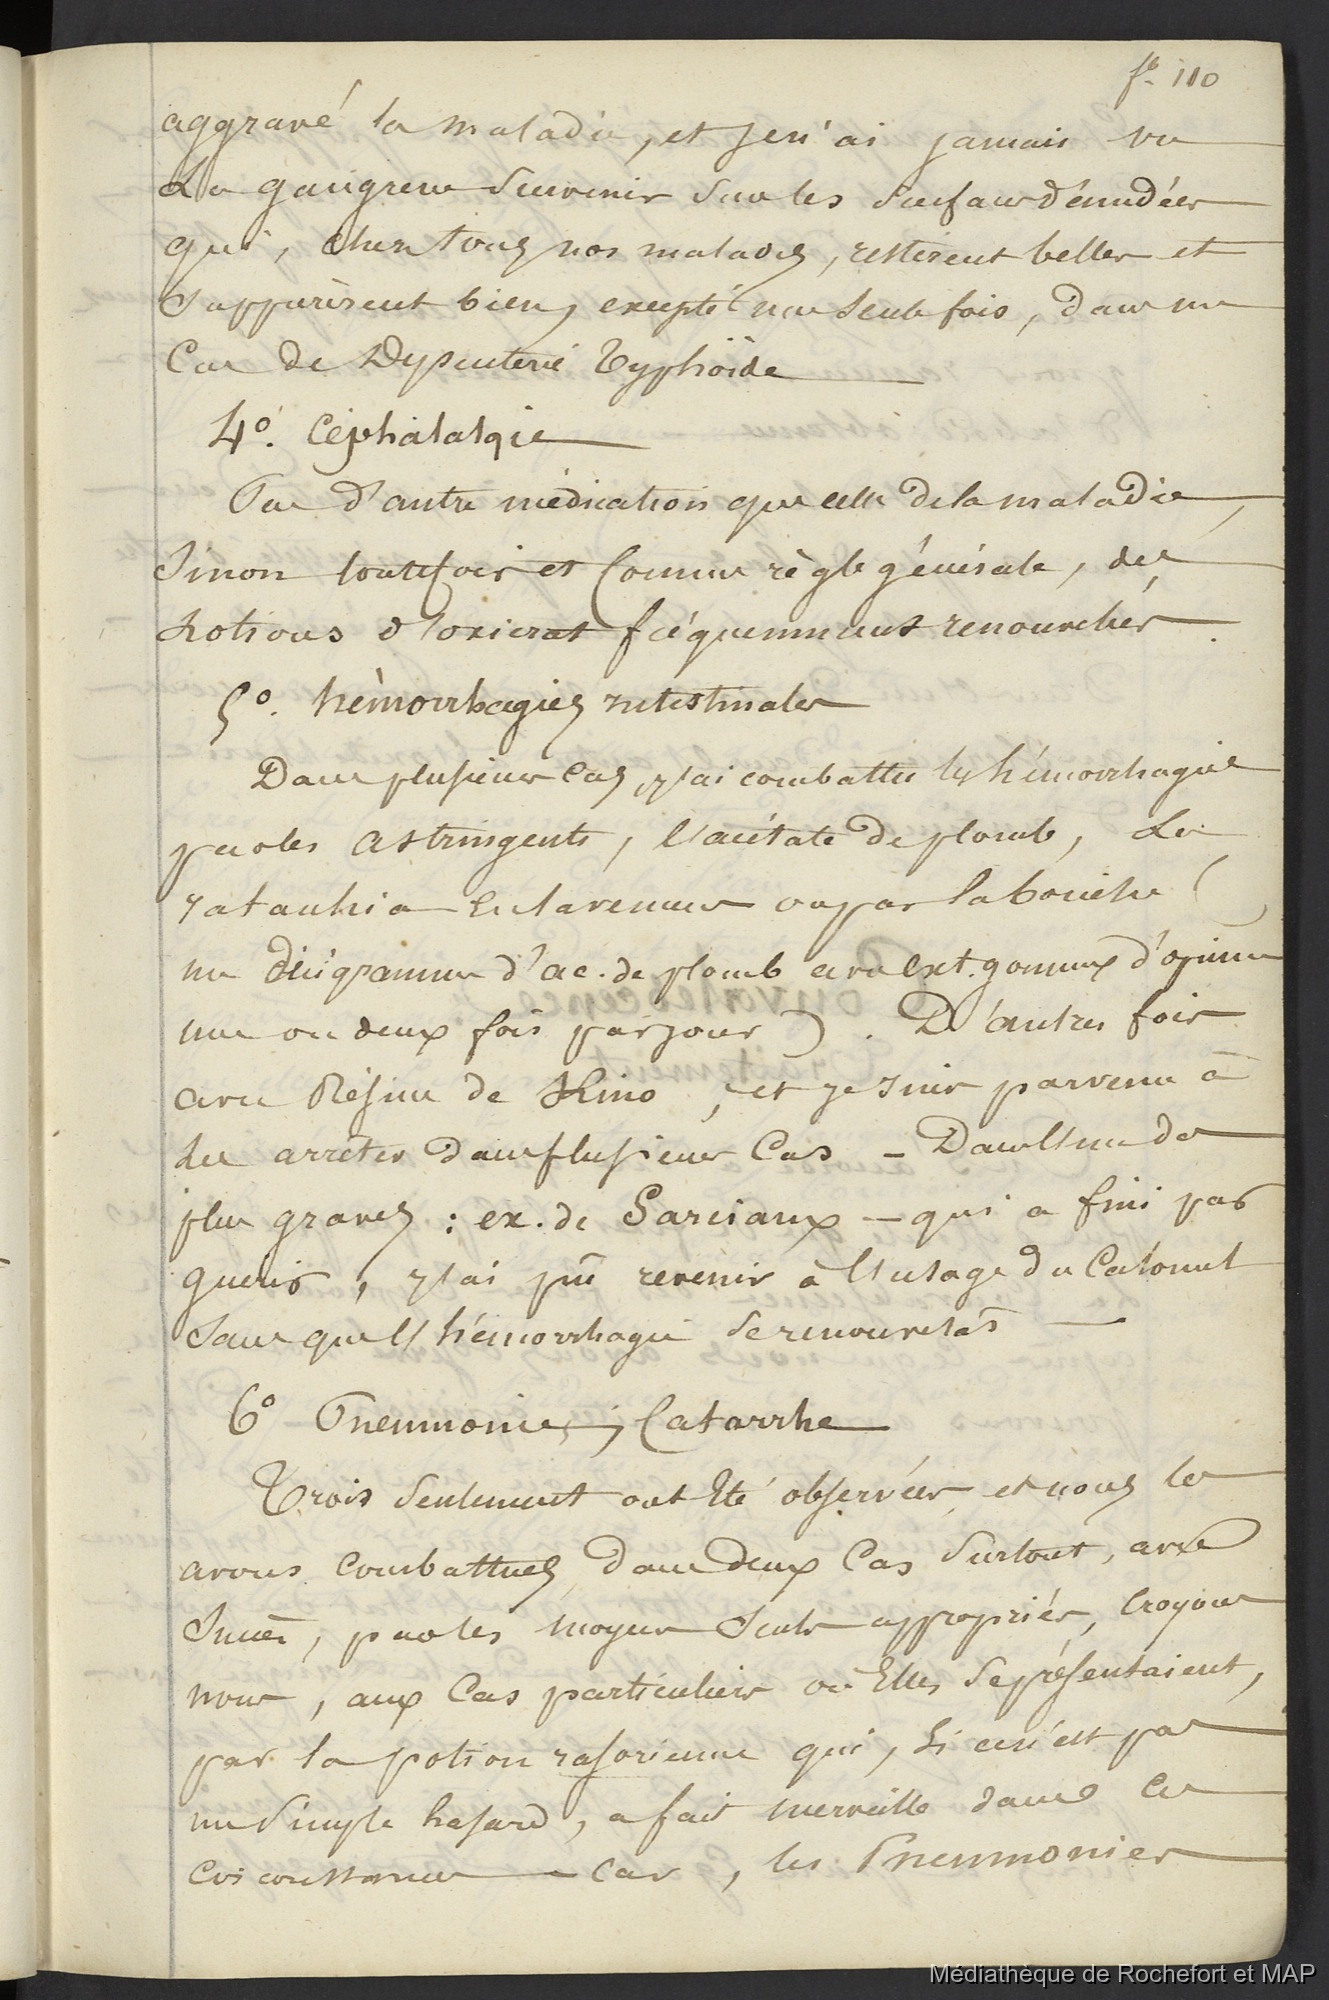 fo. 110
aggravé la maladie, et je n'ai jamais vu
la gangrène survenir sur les surfaces dénudées
qui, chez tous nos malades, restèrent belles et
suppurèrent bien, excepté une seule fois, dans un
Cas de Dyssenterie Typhoïde
4o. Céphalalgie
Pas d'autre médication que celle de la maladie,
Sinon toutefois et comme règle générale, des
lotions d'oxicrat fréquemment renouvelées.
5o. hémorrhagies intestinales
Dans plusieurs cas, j'ai combattu les hémorrhagies
par les astringents, l'acétate de plomb, le
ratanhia en lavemens ou par la bouche (
un décigramme d'ac. de plomb avec ext. gommeux d'opium
une ou deux fois par jour). D'autres fois
avec Résine de Kino, et je suis parvenu à
les arrêter dans plusieurs Cas - Dans l'un des
plus graves : ex. de Sarciaux - qui a fini par
guérir, j'ai pû revenir à l'usage du Calomel
Sans que l'hémorrhagie se renouvelât
6o Pneumonie ; Catarrhe
Trois seulement ont été observées, et nous les
avons combattues, dans deux Cas surtout, avec
Succès, par les moyens seuls appropriés, croyons
nous, aux Cas particuliers où Elles se présentaient,
par la potion rasorienne qui, si ce n'est pas
un simple hasard, a fait merveille dans ces
circonstances - Car, les Pneumonies
Médiathèque de Rochefort et MAP